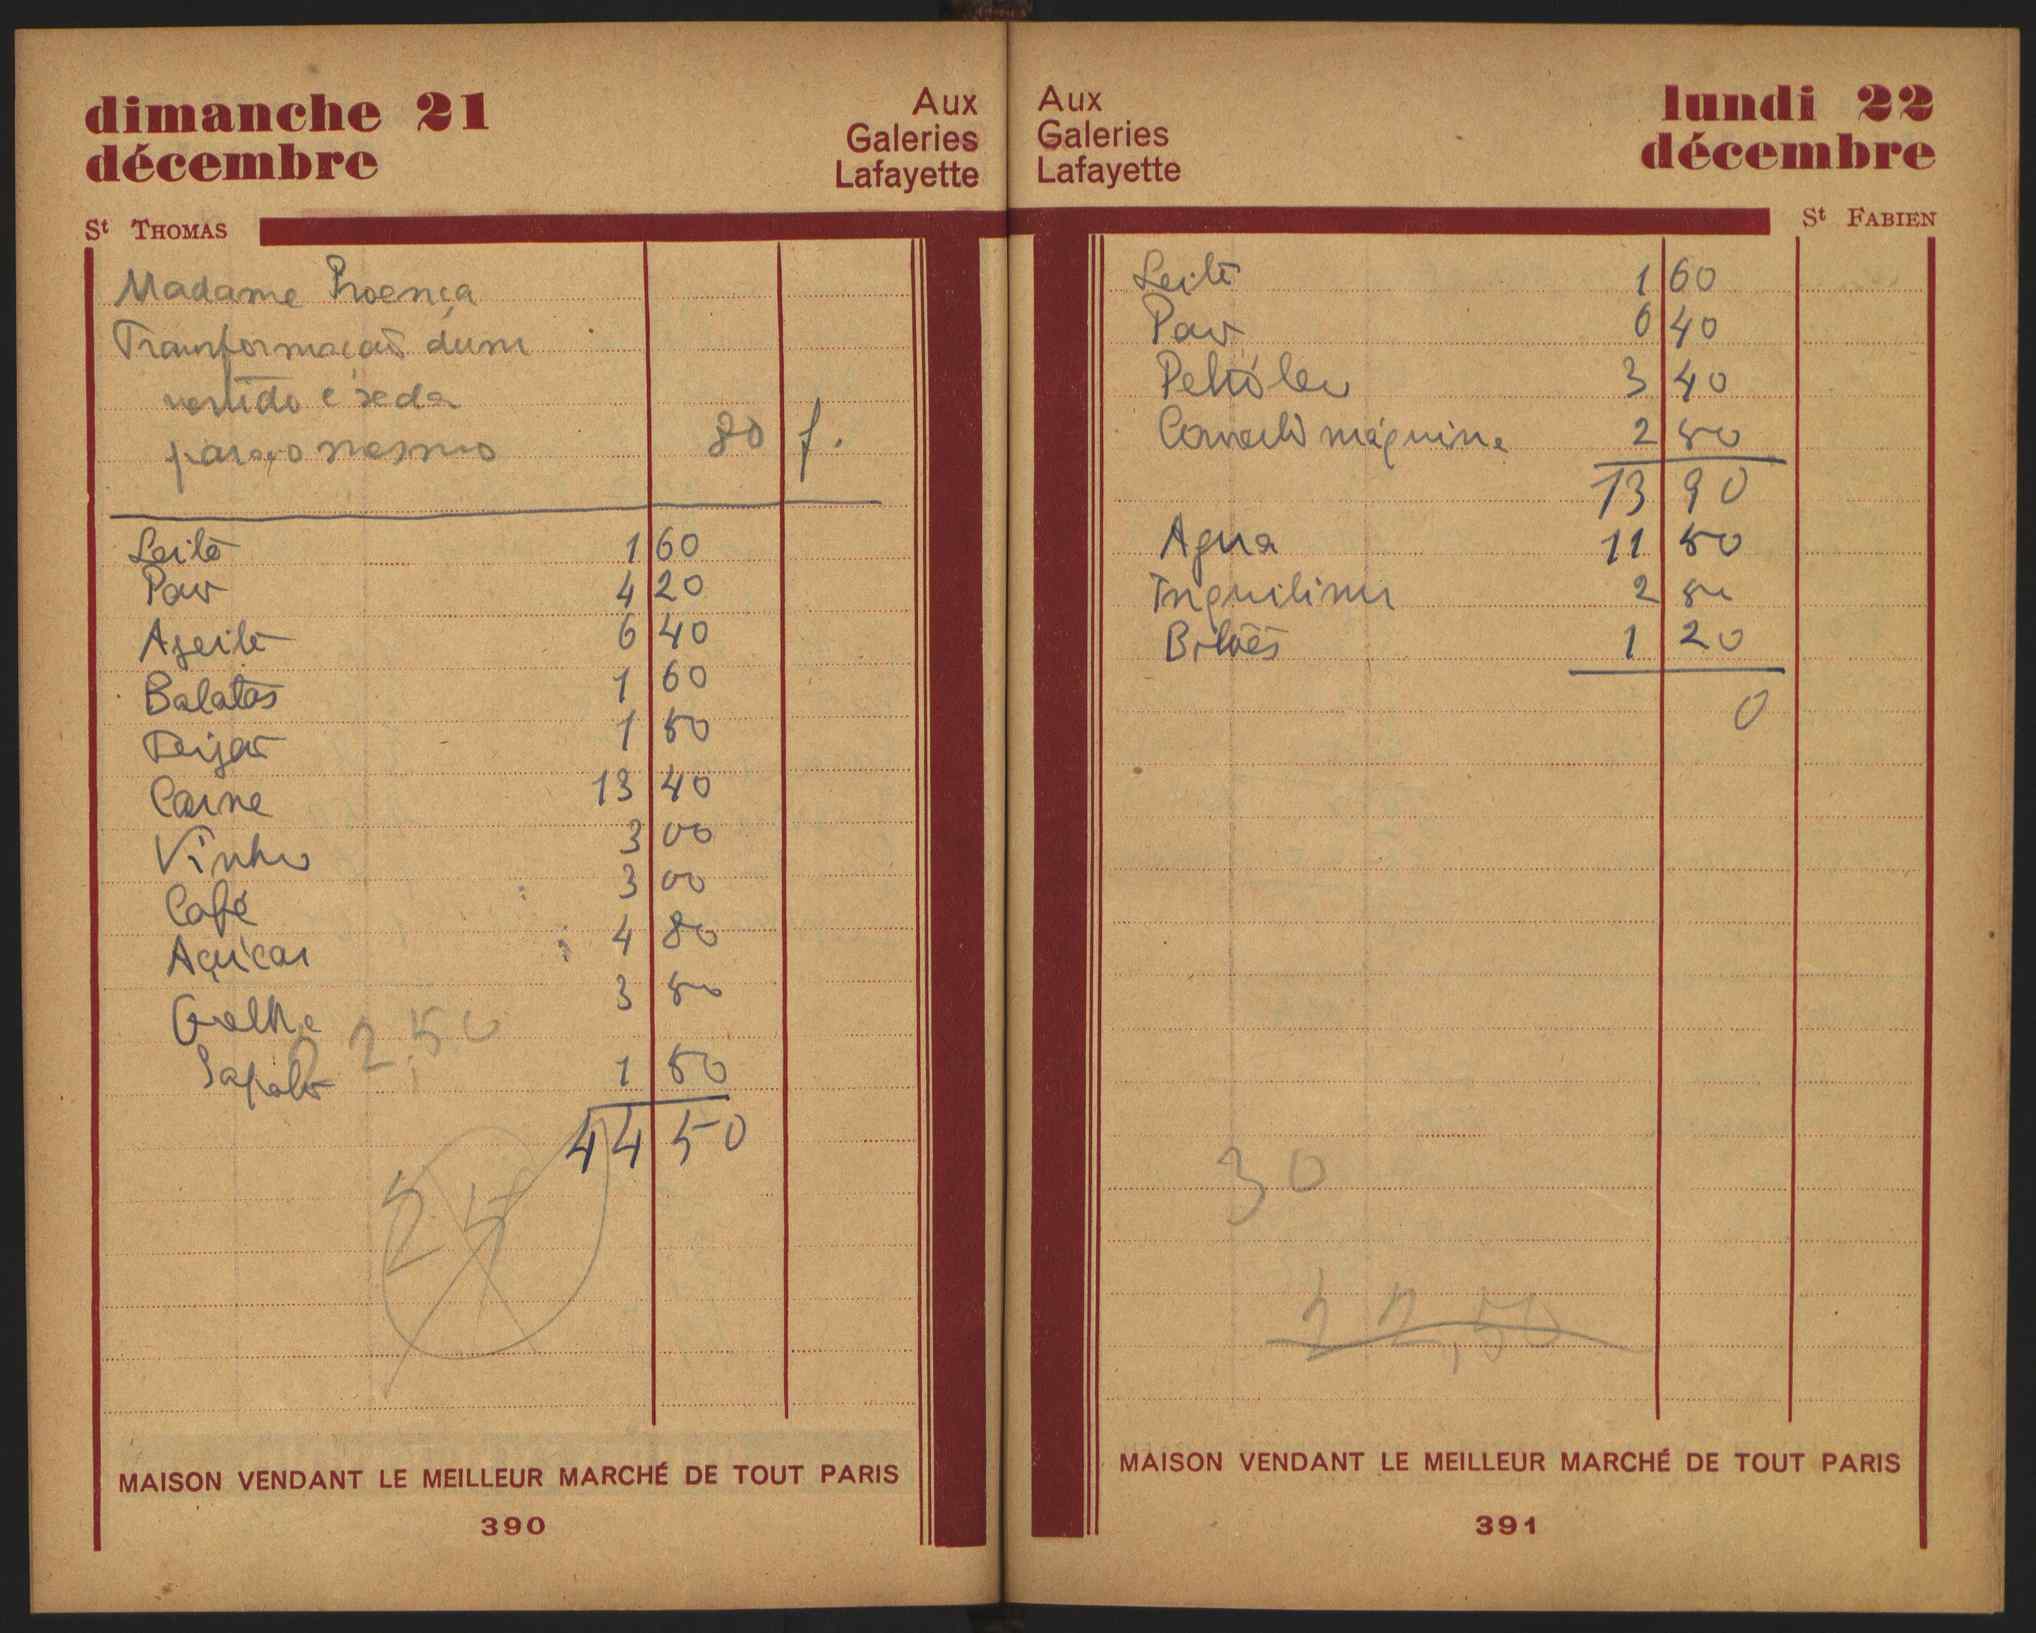 dimanche 21
décembre
Aux
Galeries
Lafayette
St THOMAS
Madame Proença
Transformação dum
vestido e seda
para o mesmo 80 f.
Leite 1 60
Pão 4 20
Azeite 6 40
Batatas 1 60
Feijão 1 50
Carne 13 40
Vinho 3 00
Café 3 00
Açúcar 4 80
3 80
2,50
1 50
44 50
25
MAISON VENDANT LE MEILLEUR MARCHÉ DE TOUT PARIS
390
Aux
Galeries
Lafayette
lundi 22
décembre
St FABIEN
Leite 1 60
Pão 6 40
Petróleo 3 40
máquina 2 50
13 90
Agua 11 50
Inquilino 2
Bilões 1 20
0
30
22,50
MAISON VENDANT LE MEILLEUR MARCHÉ DE TOUT PARIS
391